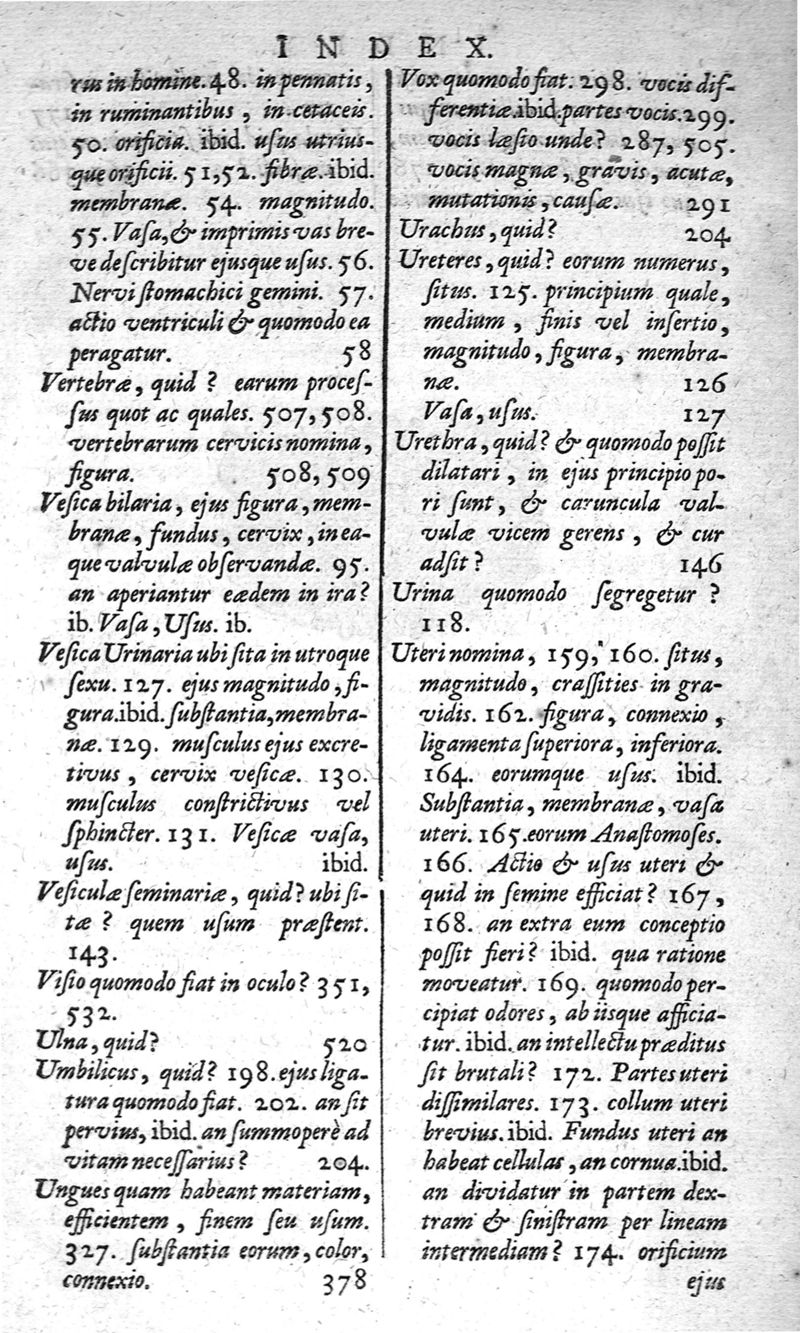 INDEX.
rus in homine. 48. in pennatis,
in ruminantibus, in cetaceis.
50. orificia. ibid. uſus utriuſ-
que orificii. 51, 52. fibræ. ibid.
membranæ. 54. magnitudo.
55. Vaſa, & imprimis vas bre-
ve deſcribitur ejusque uſus. 56.
Nervi ſtomachici gemini. 57.
actio ventriculi & quomodo ea
peragatur. 58
Vertebræ, quid? earum proceſ-
ſus quot ac quales. 507, 508.
vertebrarum cervicis nomina,
figura. 508, 509
Veſica bilaria, ejus figura, mem-
branæ, fundus, cervix, in ea-
que valvulæ obſervandæ. 95.
an aperiantur eædem in ira?
ib. Vaſa, Uſus. ib.
Veſica Urinaria ubi ſita in utroque
ſexu. 127. ejus magnitudo, fi-
gura. ibid. ſubſtantia, membra-
næ. 129. muſculus ejus excre-
tivus, cervix veſicæ. 130.
muſculus conſtrictivus vel
ſphincter. 131. Veſicæ vaſa,
uſus. ibid.
Veſiculæ ſeminariæ, quid? ubi ſi-
tæ? quem uſum præſtent.
143.
Viſio quomodo fiat in oculo? 351,
532.
Ulna, quid? 520
Umbilicus, quid? 198. ejus liga-
tura quomodo fiat. 202. an ſit
pervius, ibid. an ſummoperè ad
vitam neceſſarius? 204.
Ungues quam habeant materiam,
efficientem, finem ſeu uſum.
327. ſubſtantia eorum, color,
connexio. 378
Vox quomodo fiat. 298. vocis dif-
ferentiæ ibid. partes vocis. 299.
vocis læſio unde? 287, 505.
vocis magnæ, gravis, acutæ,
mutationis, cauſæ. 291
Urachus, quid? 204
Ureteres, quid? eorum numerus,
ſitus. 125. principium quale,
medium, finis vel inſertio,
magnitudo, figura, membra-
næ. 126
Vaſa, uſus. 127
Urethra, quid? & quomodo poſſit
dilatari, in ejus principio po-
ri ſunt, & caruncula val-
vulæ vicem gerens, & cur
adſit? 146
Urina quomodo ſegregetur?
118.
Uteri nomina, 159, 160. ſitus,
magnitudo, craſſities in gra-
vidis. 162. figura, connexio,
ligamenta ſuperiora, inferiora.
164. eorumque uſus. ibid.
Subſtantia, membranæ, vaſa
uteri. 165. eorum Anaſtomoſes.
166. Actio & uſus uteri &
quid in ſemine efficiat? 167,
168. an extra eum conceptio
poſſit fieri? ibid. qua ratione
moveatur. 169. quomodo per-
cipiat odores, ab iisque afficia-
tur. ibid. an intellectu præditus
ſit brutali? 172. Partes uteri
diſſimilares. 173. collum uteri
brevius. ibid. Fundus uteri an
habeat cellulas, an cornua. ibid.
an dividatur in partem dex-
tram & ſiniſtram per lineam
intermediam? 174. orificium
ejus